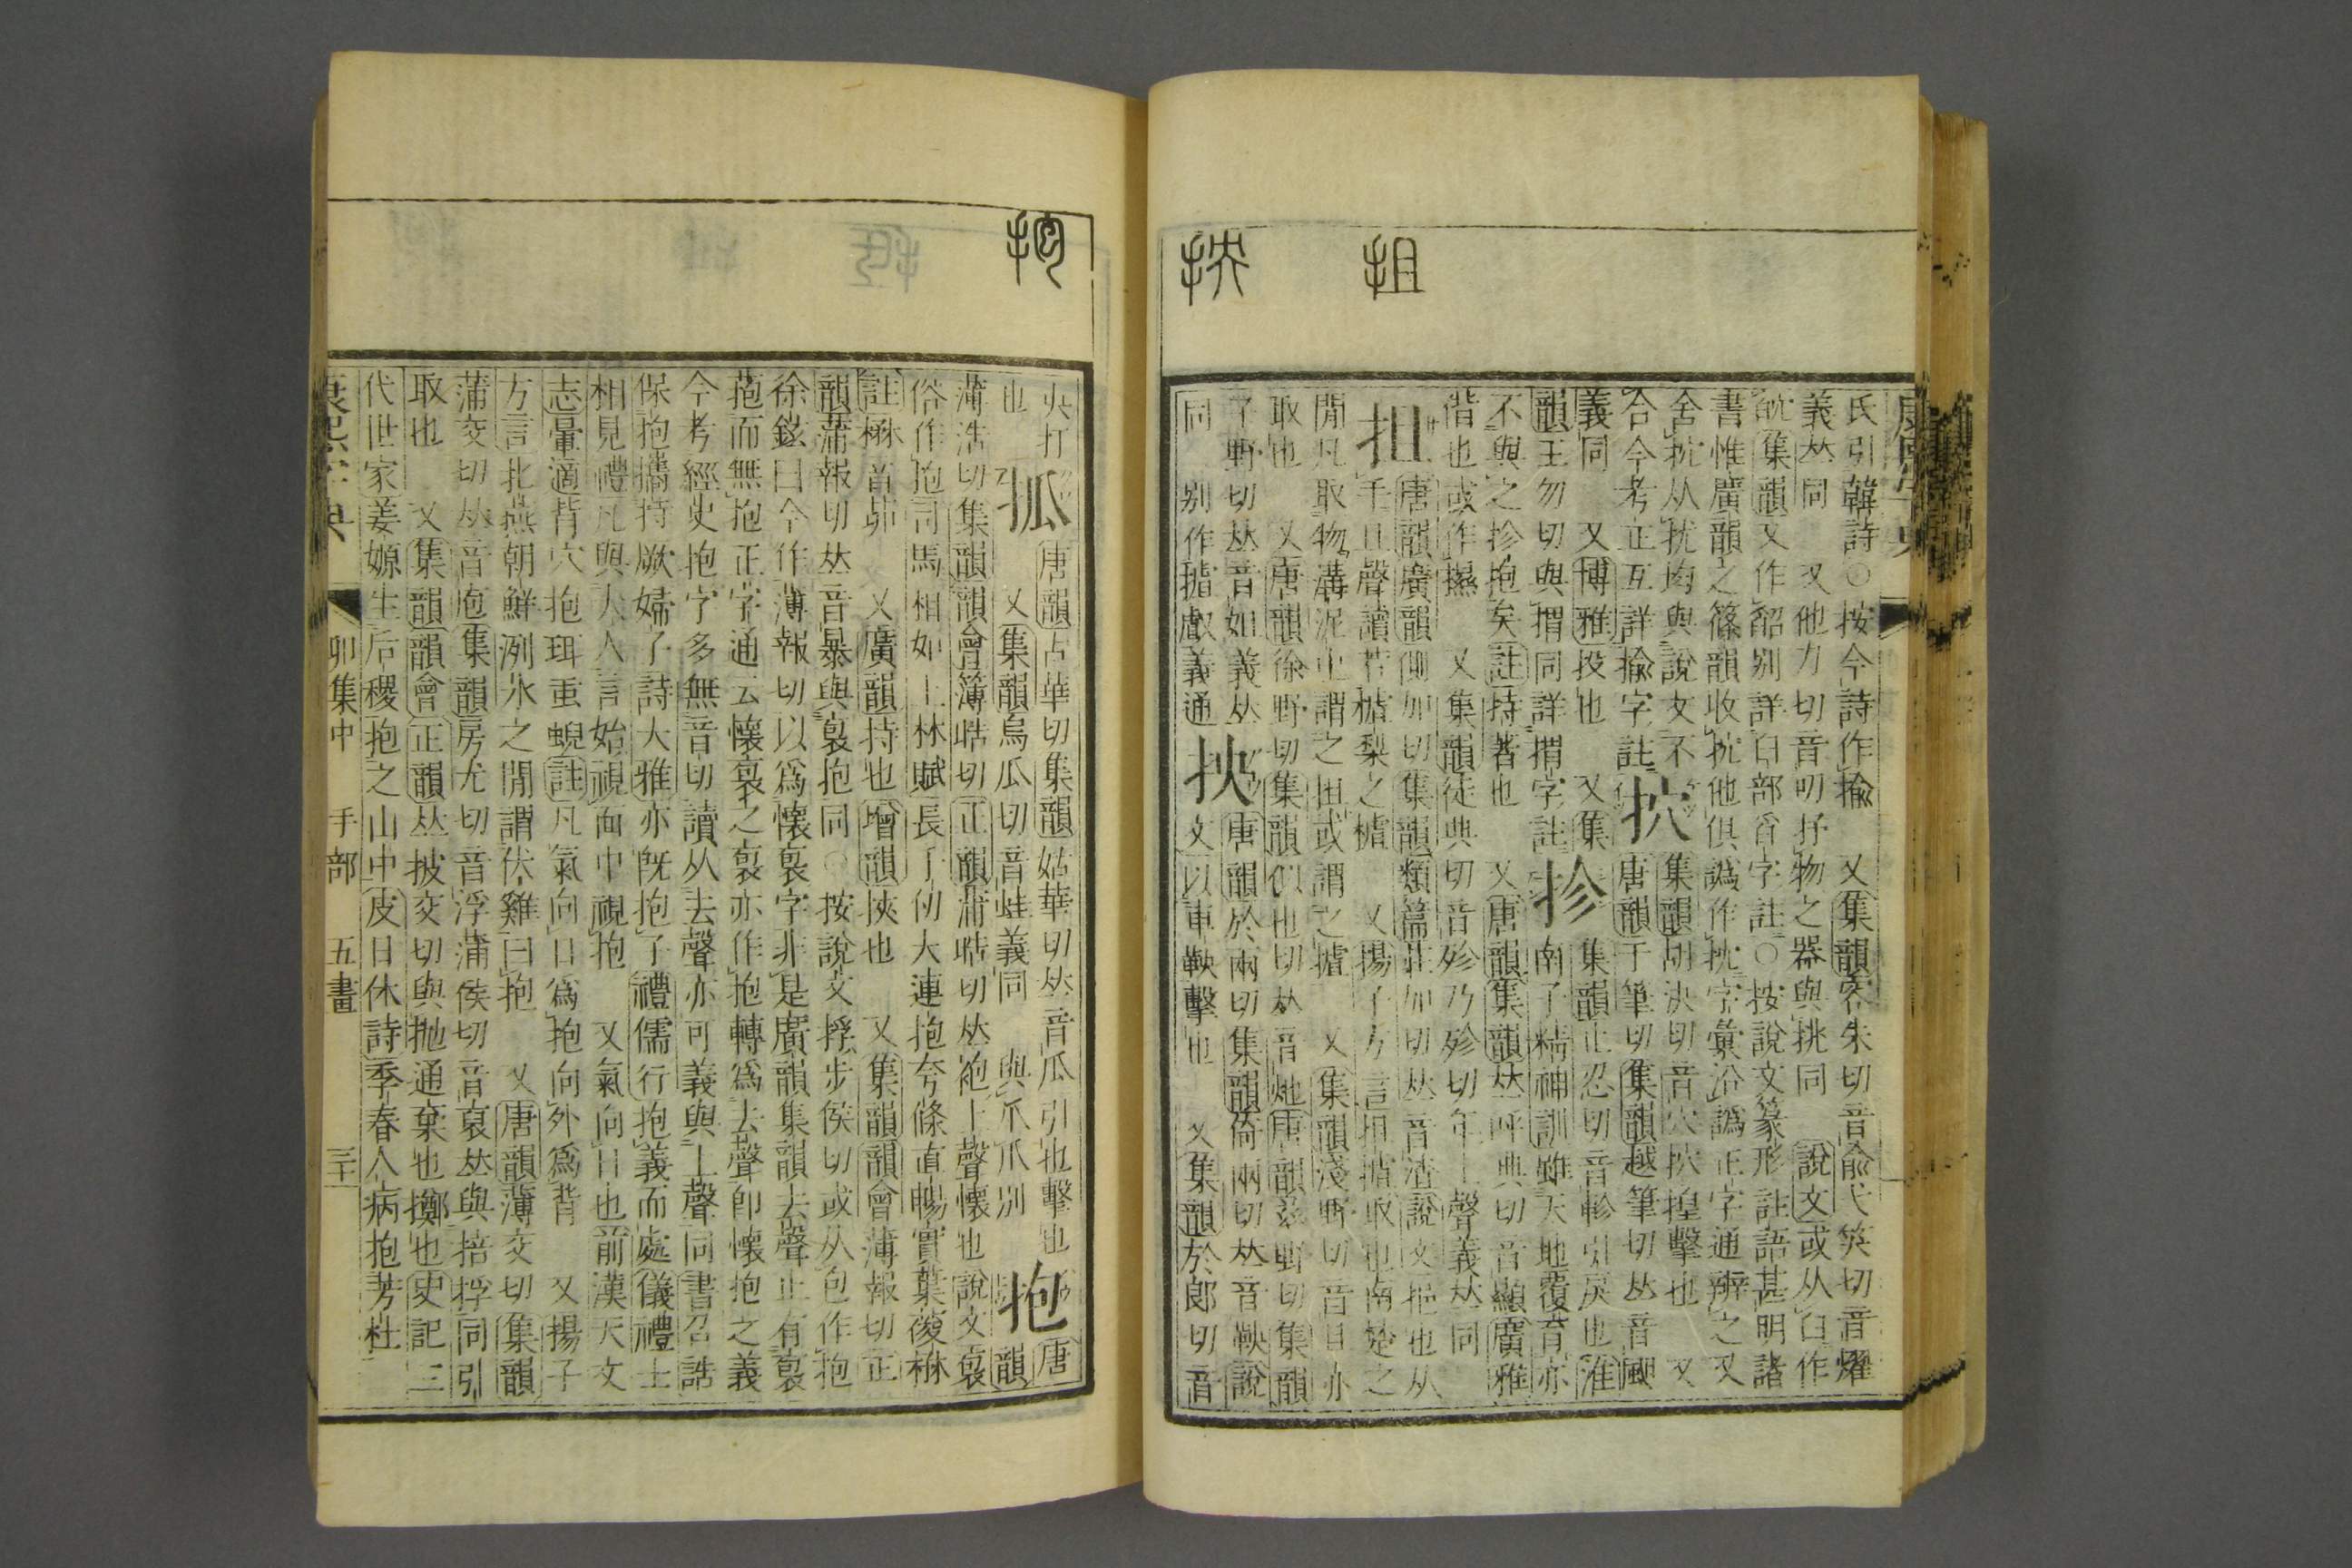 抰 抯
氏引韓詩○按今詩作揄 又集韻容朱切音俞弋笑切音燿
義𠀤同 又他刀切音叨抒物之器與挑同 說文或从臼作
㿡集韻又作㲈别詳臼部舀字註○按說文篆形註語甚明諸
書惟廣韻之篠韻收抭他俱譌作抌字彙沿譌正字通辨之又
舍抭从抌均與說文不
合今考正互詳揄字註
抭
集韻胡決切音穴抭揘擊也 又
唐韻于筆切集韻越筆切𠀤音颶
義同 又博雅投也 又集
韻王勿切與抇同詳抇字註
抮
集韻止忍切音軫引戾也淮
南子精神訓雖天地覆育亦
不與之抮抱矣註持著也 又唐韻集韻𠀤呼典切音顯廣雅
偕也或作攥 又集韻徒典切音殄乃殄切年上聲義𠀤同
抯
唐韻廣韻側加切集韻類篇莊加切𠀤音渣說文挹也从
手且聲讀若樝棃之樝 又揚子方言抯摣取也南楚之
閒凡取物溝泥中謂之抯或謂之摣 又集韻淺野切音且亦
取也 又唐韻徐野切集韻似也切𠀤音灺唐韻兹野切集韻
子野切𠀤音如義𠀤
同 别作摣㪥義通
抰
唐韻於兩切集韻倚兩切𠀤音鞅說
文以車鞅擊也 又集韻於郎切音
抱
央打
也
抓
唐韻古華切集韻姑華切𠀤音瓜引也擊也
又集韻烏瓜切音蛙義同 與爪爪别
抱
唐
韻
薄浩切集韻韻會簿晧切正韻蒲晧切𠀤袍上聲懷也說文裒
俗作抱司馬相如上林賦長千仞大連抱夸條直暢實葉葰楙
註楙音茆 又廣韻持也增韻挾也 又集韻韻會薄報切正
韻蒲報切𠀤音暴與裒抱同○按說文捊步侯切或从包作抱
徐鉉曰今作薄報切以爲懷裒字非是廣韻集韻去聲止有裒
菢而無抱正字通云懷裒之裒亦作抱轉爲去聲卽懷抱之義
今考經史抱字多無音切讀从去聲亦可義與上聲同書召誥
保抱攜持厥婦子詩大雅亦旣抱子禮儒行抱義而處儀禮士
相見禮凡與大人言始視面中視抱 又氣向日也前漢天文
志暈適背穴抱珥䖝蜺註凡氣向日爲抱向外爲背 又揚子
方言北燕朝鮮洌水之閒謂伏雞曰抱 又唐韻薄交切集韻
蒲交切𠀤音庖集韻房尤切音浮蒲侯切音裒𠀤與掊捊同引
取也 又集韻韻會正韻𠀤披交切與抛通棄也擲也史記三
代世家姜嫄生后稷抱之山中皮日休詩季春人病抱芳杜
卯集中 手部 五畫 三十